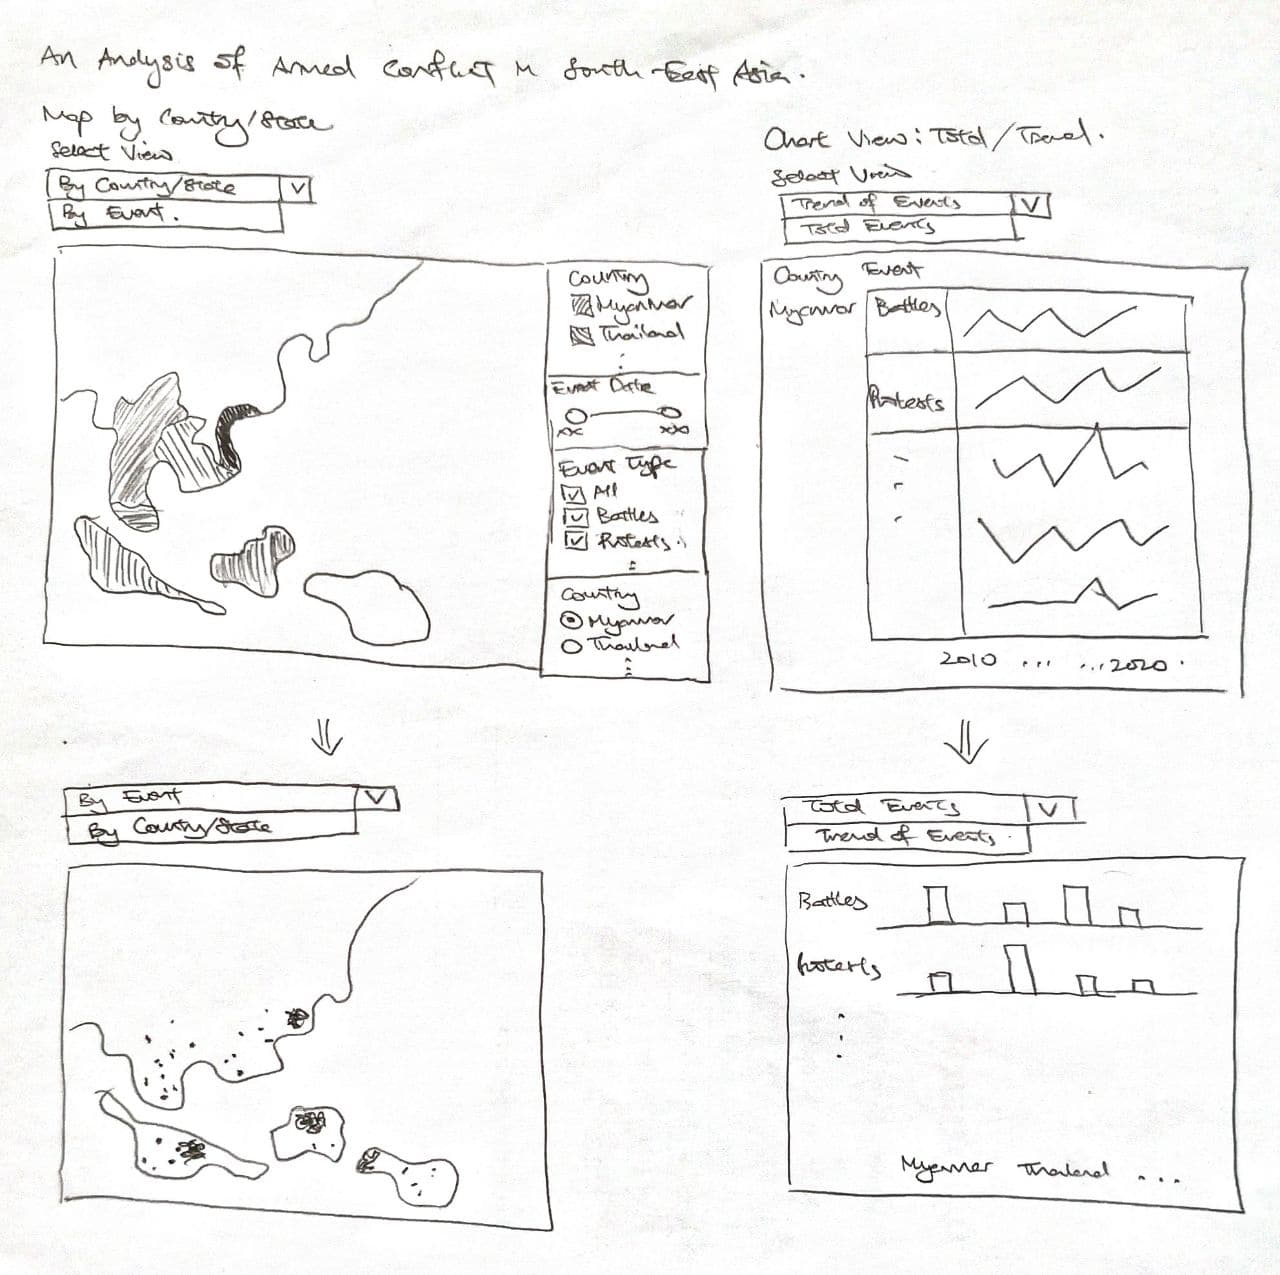 An Analysis of Armed Conflict in South-East Asia.
Map by Country/State
Select View
By Country/State
By Event.
Country
Myanmar
Thailand
Event Date
xx xxx
Event Type
All
Battles
Protests.
Country
Myanmar
Thailand
By Event
By Country/State
Chart View: Total/Trend.
Select View
Trend of Events
Total Events
Country Event
Myanmar Battles
Protests
2010 ... ...2020.
Total Events
Trend of Events.
Battles
Protests
Myanmar Thailand ...